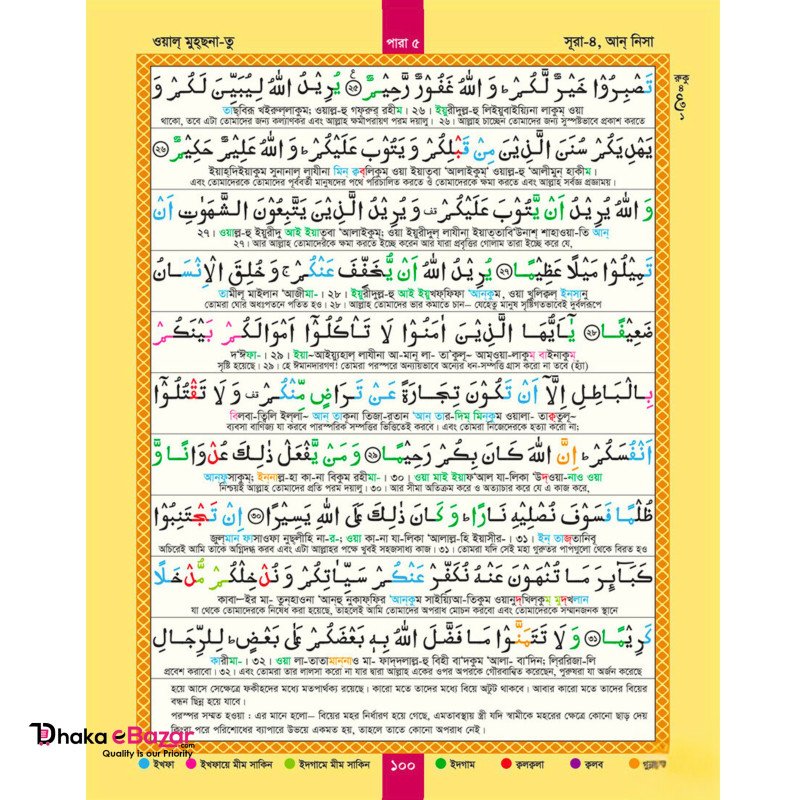 ওয়াল্ মুহ্ছনা-তু
পারা ৫
সূরা-৪, আন্ নিসা
রুকু
تَصْبِرُوْا خَيْرٌ لَّكُمْ ؕ وَ اللّٰهُ غَفُوْرٌ رَّحِيْمٌ ﴿۲۵﴾ يُرِيْدُ اللّٰهُ لِيُبَيِّنَ لَكُمْ وَ
তাছবিরূ খইরুল্লাকুম; ওয়াল্ল-হু গফূরুর্ রহীম। ২৬। ইয়ুরীদুল্ল-হু লিইয়ুবাইয়্যিনা লাকুম্ ওয়া
থাকো, তবে এটা তোমাদের জন্য কল্যাণকর এবং আল্লাহ ক্ষমাপরায়ণ পরম দয়ালু। ২৬। আল্লাহ চাচ্ছেন তোমাদের জন্য সুস্পষ্টভাবে প্রকাশ করতে
يَهْدِيَكُمْ سُنَنَ الَّذِيْنَ مِنْ قَبْلِكُمْ وَ يَتُوْبَ عَلَيْكُمْ ؕ وَ اللّٰهُ عَلِيْمٌ حَكِيْمٌ ﴿۲۶﴾
ইয়াহ্দিইয়াকুম সুনানাল্ লাযীনা মিন্ ক্বব্লিকুম্ ওয়া ইয়াতূবা ‘আলাইকুম্ ওয়াল্ল-হু ‘আলীমুন্ হাকীম।
এবং তোমাদেরকে তোমাদের পূর্ববর্তী মানুষদের পথে পরিচালিত করতে ও তোমাদেরকে ক্ষমা করতে এবং আল্লাহ সর্বজ্ঞ প্রজ্ঞাময়।
وَ اللّٰهُ يُرِيْدُ اَنْ يَّتُوْبَ عَلَيْكُمْ ۟ وَ يُرِيْدُ الَّذِيْنَ يَتَّبِعُوْنَ الشَّهَوٰتِ اَنْ
২৭। ওয়াল্ল-হু ইয়ুরীদু আই ইয়াতূবা ‘আলাইকুম; ওয়া ইয়ুরীদুল্ লাযীনা ইয়াত্তাবি‘উনাশ্ শাহাওয়া-তি আন্
২৭। আর আল্লাহ তোমাদেরকে ক্ষমা করতে ইচ্ছে করেন আর যারা প্রবৃত্তির গোলাম তারা ইচ্ছে করে যে,
تَمِيْلُوْا مَيْلًا عَظِيْمًا ﴿۲۷﴾ يُرِيْدُ اللّٰهُ اَنْ يُّخَفِّفَ عَنْكُمْ ۚ وَ خُلِقَ الْاِنْسَانُ
তামীলূ মাইলান ‘আজীমা-। ২৮। ইয়ুরীদুল্ল-হু আই ইয়ুখফ্ফিফা ‘আনকুম, ওয়া খুলিক্বল্ ইনসানু
তোমরা ঘোর অধঃপতনে পতিত হও। ২৮। আল্লাহ তোমাদের ভার কমাতে চান– যেহেতু মানুষ সৃষ্টিগতভাবেই দুর্বলরূপে
ضَعِيْفًا ﴿۲۸﴾ يٰۤاَيُّهَا الَّذِيْنَ اٰمَنُوْا لَا تَاْكُلُوْۤا اَمْوَالَكُمْ بَيْنَكُمْ
দ‘ঈফা-। ২৯। ইয়া~আইয়্যুহাল্ লাযীনা আ-মানূ লা- তা’কুলূ~ আম্ওয়া-লাকুম্ বাইনাকুম্
সৃষ্টি হয়েছে। ২৯। হে ঈমানদারগণ! তোমরা পরস্পরে অন্যায়ভাবে অন্যের ধন-সম্পত্তি গ্রাস করো না তবে (হ্যাঁ)
بِالْبَاطِلِ اِلَّاۤ اَنْ تَكُوْنَ تِجَارَةً عَنْ تَرَاضٍ مِّنْكُمْ ۟ وَ لَا تَقْتُلُوْۤا
বিলবা-তিলি ইল্লা~ আন্ তাকূনা তিজা-রতান ‘আন্ তার-দ্বিম্ মিন্কুম ওয়ালা- তাক্বতুলূ~
ব্যবসা বাণিজ্য যা করবে পারস্পরিক সম্পত্তির ভিত্তিতেই করবে। এবং তোমরা নিজেদেরকে হত্যা করো না;
اَنْفُسَكُمْ ؕ اِنَّ اللّٰهَ كَانَ بِكُمْ رَحِيْمًا ﴿۲۹﴾ وَ مَنْ يَّفْعَلْ ذٰلِكَ عُدْوَانًا وَّ
আনফুসাকুম; ইননাল্ল-হা কা-না বিকুম রহীমা-। ৩০। ওয়া মাই ইয়াফ‘আল যা-লিকা ‘উদ্ওয়া-নাও ওয়া
নিশ্চয়ই আল্লাহ তোমাদের প্রতি পরম দয়ালু। ৩০। আর সীমা অতিক্রম করে ও অত্যাচার করে যে এ কাজ করে,
ظُلْمًا فَسَوْفَ نُصْلِيْهِ نَارًا ؕ وَ كَانَ ذٰلِكَ عَلَى اللّٰهِ يَسِيْرًا ﴿۳۰﴾ اِنْ تَجْتَنِبُوْا
জুল্মান্ ফাসাওফা নুছ্লীহি না-র-; ওয়া কা-না যা-লিকা ‘আলাল্ল-হি ইয়াসীর-। ৩১। ইন্ তাজ্তানিবূ
অচিরেই আমি তাকে অগ্নিদগ্ধ করব এবং এটা আল্লাহর পক্ষে খুবই সহজসাধ্য কাজ। ৩১। তোমরা যদি সেই মহা গুরুতর পাপগুলো থেকে বিরত হও
كَبَآىِٕرَ مَا تُنْهَوْنَ عَنْهُ نُكَفِّرْ عَنْكُمْ سَيِّاٰتِكُمْ وَ نُدْخِلْكُمْ مُّدْخَلًا
কাবা—ইর মা- তুনহাওনা ‘আনহু নুকাফ্ফির ‘আনকুম সাইয়্যিআ-তিকুম ওয়ানুদ্খিলকুম্ মুদ্খলান
যা থেকে তোমাদেরকে নিষেধ করা হয়েছে, তাহলেই আমি তোমাদের অপরাধ মোচন করবো এবং তোমাদেরকে সম্মানজনক স্থানে
كَرِيْمًا ﴿۳۱﴾ وَ لَا تَتَمَنَّوْا مَا فَضَّلَ اللّٰهُ بِهٖ بَعْضَكُمْ عَلٰى بَعْضٍ ؕ لِلرِّجَالِ
কারীমা-। ৩২। ওয়া লা-তাতামাননাও মা- ফাদ্দলাল্ল-হু বিহী বা‘দকুম ‘আলা- বা‘দিন; লির্রিজা-লি
প্রবেশ করাবো। ৩২। এবং তোমরা তার লালসা করো না যার দ্বারা আল্লাহ একের ওপর অপরকে গৌরবান্বিত করেছেন, পুরুষরা যা অর্জন করেছে
হয়ে আসে সেক্ষেত্রে ফকীহদের মধ্যে মতপার্থক্য রয়েছে। কারো মতে তাদের মধ্যে বিয়ে অটুট থাকবে। আবার কারো মতে তাদের বিয়ের
বন্ধন ছিন্ন হয়ে যাবে।
পরস্পর সম্মত হওয়া : এর মানে হলো– বিয়ের মহর নির্ধারণ হয়ে গেছে, এমতাবস্থায় স্ত্রী যদি স্বামীকে মহরের ক্ষেত্রে কোনো ছাড় দেয়
কিংবা পরে পরিশোধের ব্যাপারে উভয়ে একমত হয়, তাহলে তাতে কোনো অপরাধ নেই।
Dhaka eBazar.com
Quality is our Priority
ইখফা ইখফায়ে মীম সাকিন ইদগামে মীম সাকিন ১০০ ইদগাম ক্বলক্বলা ক্বলব গুন্নাহ